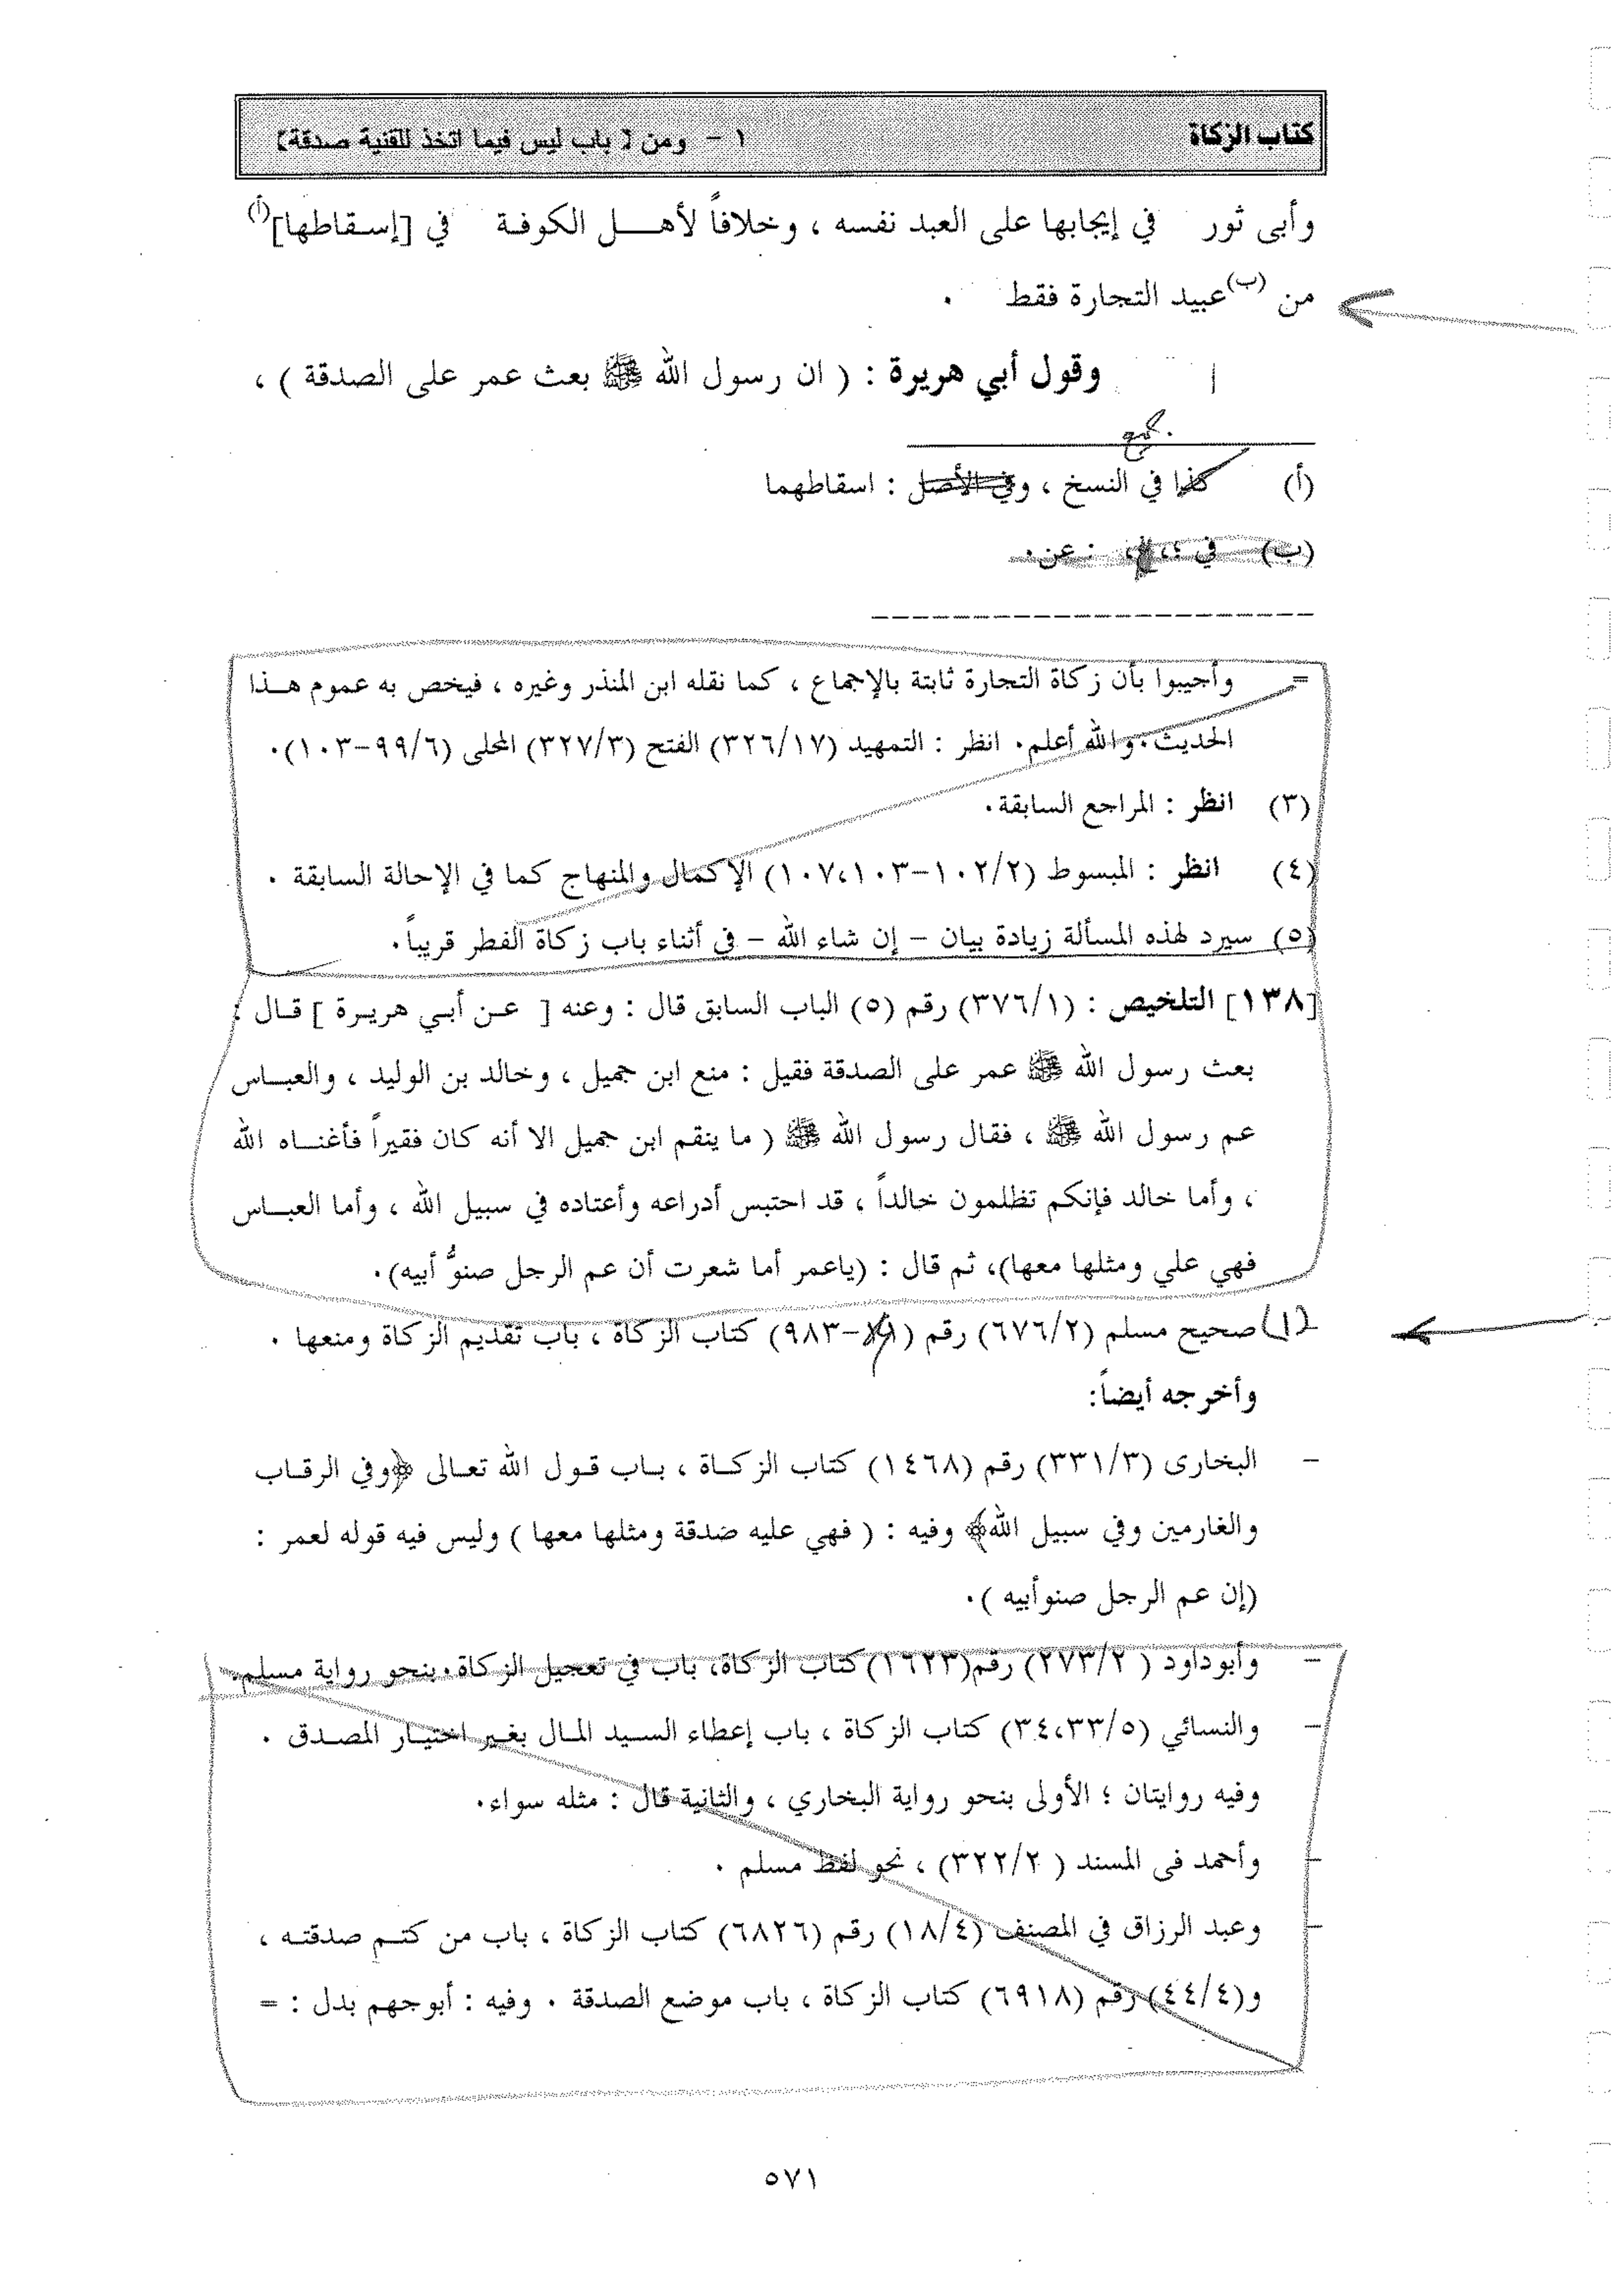 كتاب الزكاة ١ - ومن [ باب ليس فيما اتخذ للقنية صدقة]
وأبى ثور في إيجابها على العبد نفسه ، وخلافاً لأهل الكوفة في [إسقاطها](أ)
من (ب)عبيد التجارة فقط .
وقول أبي هريرة : ( ان رسول الله ﷺ بعث عمر على الصدقة ) ،
(أ) كذا في النسخ ، وفي الأصل : اسقاطهما
(ب) في : عن .
= وأجيبوا بأن زكاة التجارة ثابتة بالإجماع ، كما نقله ابن المنذر وغيره ، فيخص به عموم هذا
الحديث . والله أعلم . انظر : التمهيد (٣٢٦/١٧) الفتح (٣٢٧/٣) المحلى (٩٩/٦-١٠٣) .
(٣) انظر : المراجع السابقة .
(٤) انظر : المبسوط (١٠٢/٢-١٠٧،١٠٣) الإكمال والمنهاج كما في الإحالة السابقة .
(٥) سيرد لهذه المسألة زيادة بيان - إن شاء الله - في أثناء باب زكاة الفطر قريباً .
[١٣٨] التلخيص : (٣٧٦/١) رقم (٥) الباب السابق قال : وعنه [ عن أبي هريرة ] قال :
بعث رسول الله ﷺ عمر على الصدقة فقيل : منع ابن جميل ، وخالد بن الوليد ، والعباس
عم رسول الله ﷺ ، فقال رسول الله ﷺ ( ما ينقم ابن جميل الا أنه كان فقيراً فأغناه الله
، وأما خالد فإنكم تظلمون خالداً ، قد احتبس أدراعه وأعتاده في سبيل الله ، وأما العباس
فهي علي ومثلها معها)، ثم قال : (ياعمر أما شعرت أن عم الرجل صنوُّ أبيه) .
(١) صحيح مسلم (٦٧٦/٢) رقم (١١-٩٨٣) كتاب الزكاة ، باب تقديم الزكاة ومنعها .
وأخرجه أيضاً:
- البخارى (٣٣١/٣) رقم (١٤٦٨) كتاب الزكاة ، باب قول الله تعالى ﴿وفي الرقاب
والغارمين وفي سبيل الله﴾ وفيه : ( فهي عليه صدقة ومثلها معها ) وليس فيه قوله لعمر :
(إن عم الرجل صنوأبيه ) .
- وأبوداود ( ٢٧٣/٢) رقم(١٦٢٣) كتاب الزكاة، باب في تعجيل الزكاة . بنحو رواية مسلم .
- والنسائي (٣٤،٣٣/٥) كتاب الزكاة ، باب إعطاء السيد المال بغير اختيار المصدق .
وفيه روايتان ؛ الأولى بنحو رواية البخاري ، والثانية قال : مثله سواء .
- وأحمد فى المسند ( ٣٢٢/٢) ، نحو لفظ مسلم .
- وعبد الرزاق في المصنف (١٨/٤) رقم (٦٨٢٦) كتاب الزكاة ، باب من كتم صدقته ،
و(٤٤/٤) رقم (٦٩١٨) كتاب الزكاة ، باب موضع الصدقة . وفيه : أبوجهم بدل : =
٥٧١